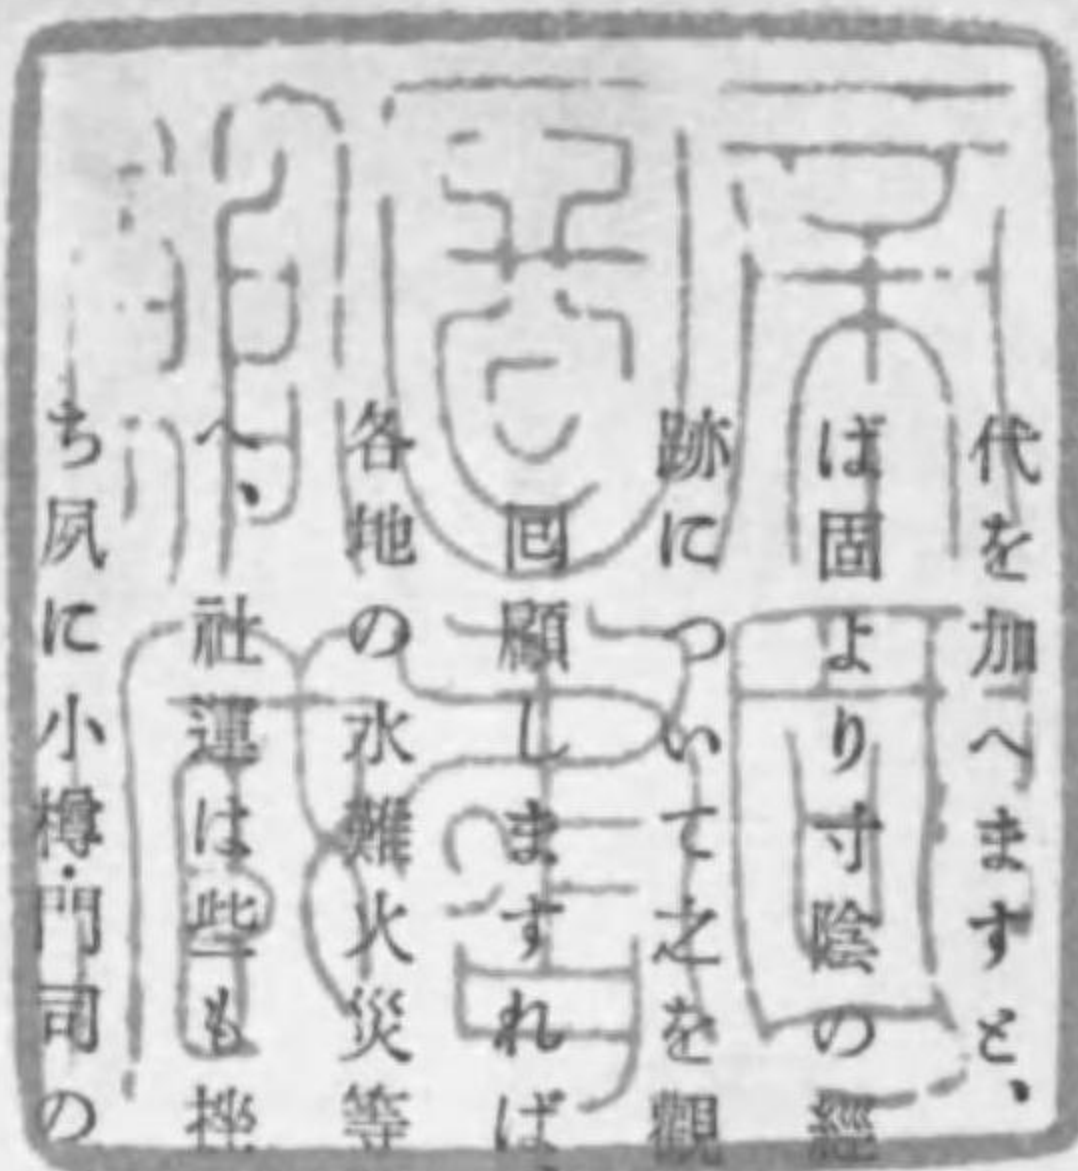 代を加へますと、
ば固より寸陰の經
跡について之を觀
回顧しますれば、
各地の水難火災等
へ、社運は些も挫
ち夙に小樽・門司の